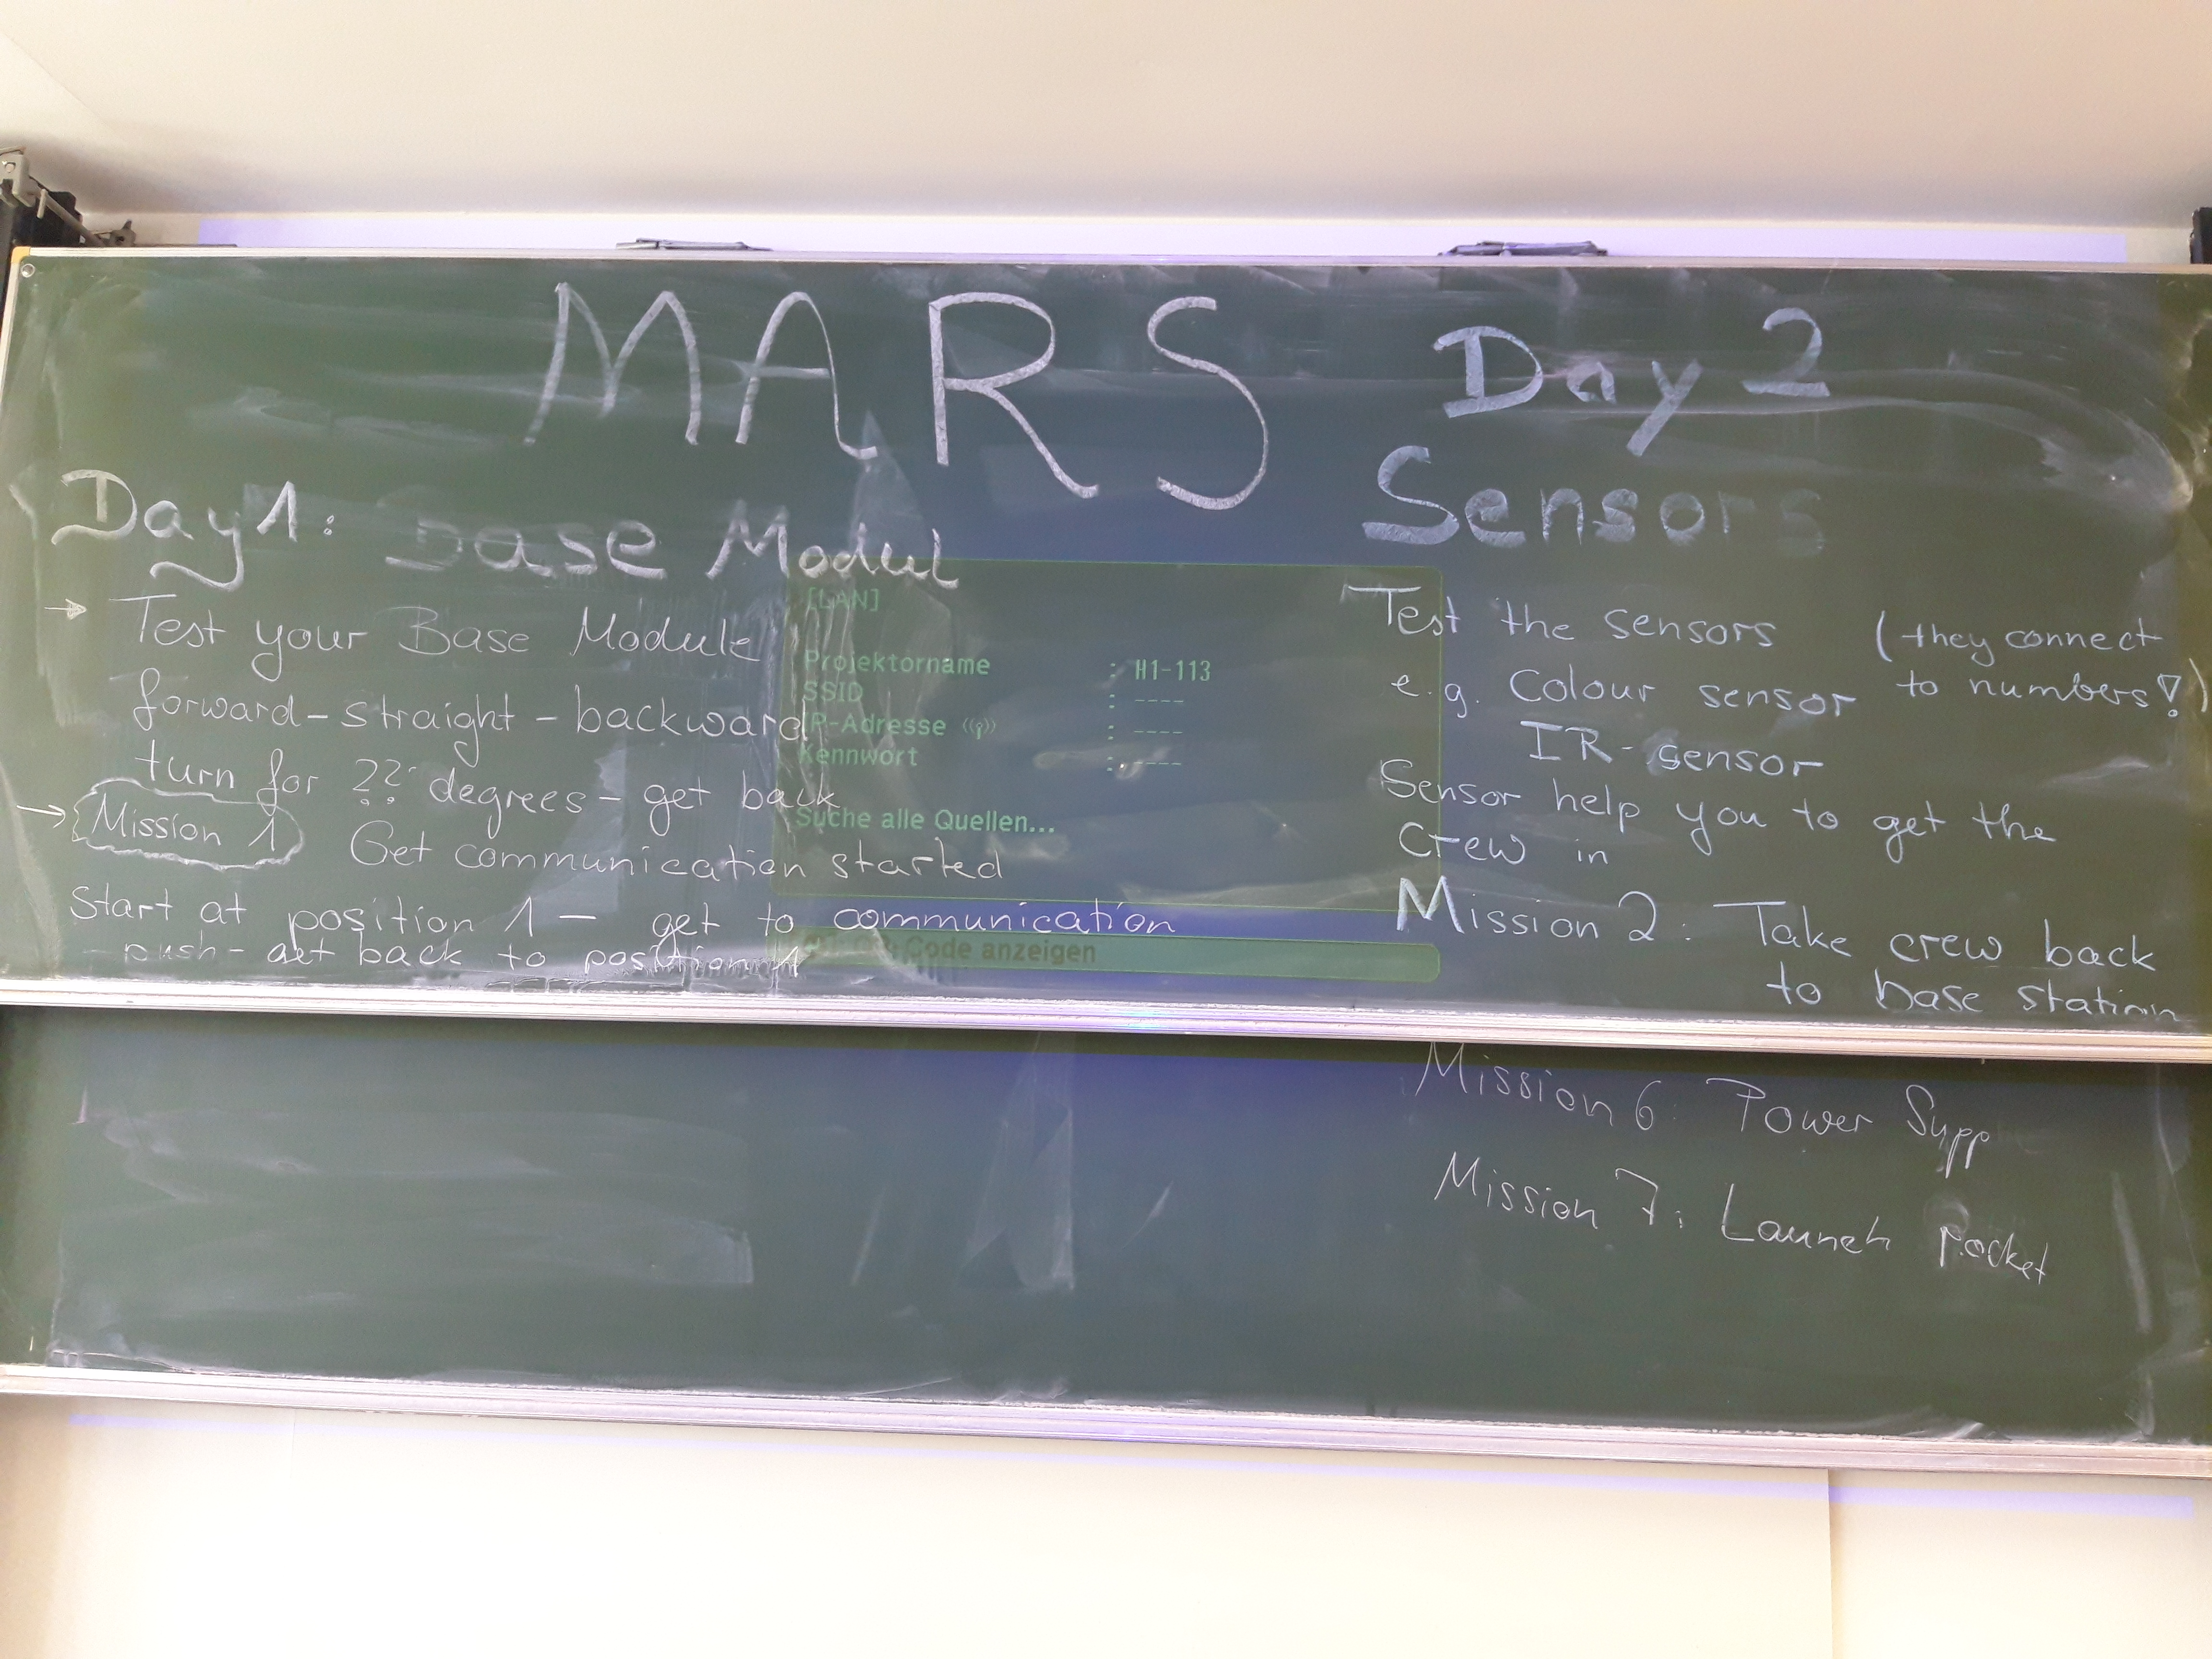 MARS
Day 1: Base Modul
→ Test your Base Module
forward - straight - backward
turn for ?? degrees - get back
→ Mission 1 Get communication started
Start at position 1 - get to communication
- push - get back to position 1
[LAN]
Projektorname : H1-113
SSID : ----
IP-Adresse : ----
Kennwort : ----
Suche alle Quellen...
Code anzeigen
Day 2
Sensors
Test the sensors (they connect
e.g. Colour sensor to numbers!)
IR-sensor
Sensor help you to get the
Crew in
Mission 2: Take crew back
to base station
Mission 6: Power Supp
Mission 7: Launch rocket